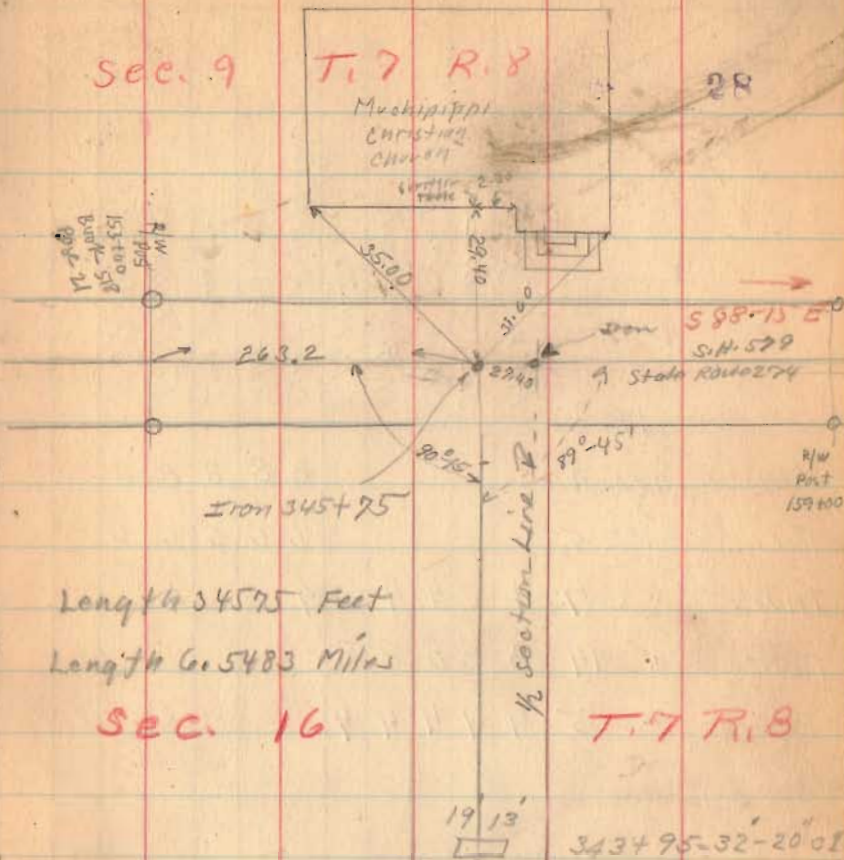 Sec. 9 T.7 R.8
28
Muchipippi
Christian
Church
2.30
R/W
Post
153+00
35.00
29.40
31.60
Iron
S 88-15 E
S.H. 579
State Route 274
263.2
27.40
90°15'
89°-45'
R/W
Post
159+00
Iron 345+75
1/2 Section Line
Length 34575 Feet
Length 6.5483 Miles
Sec. 16 T.7 R.8
19 13'
343+95-32'-20"